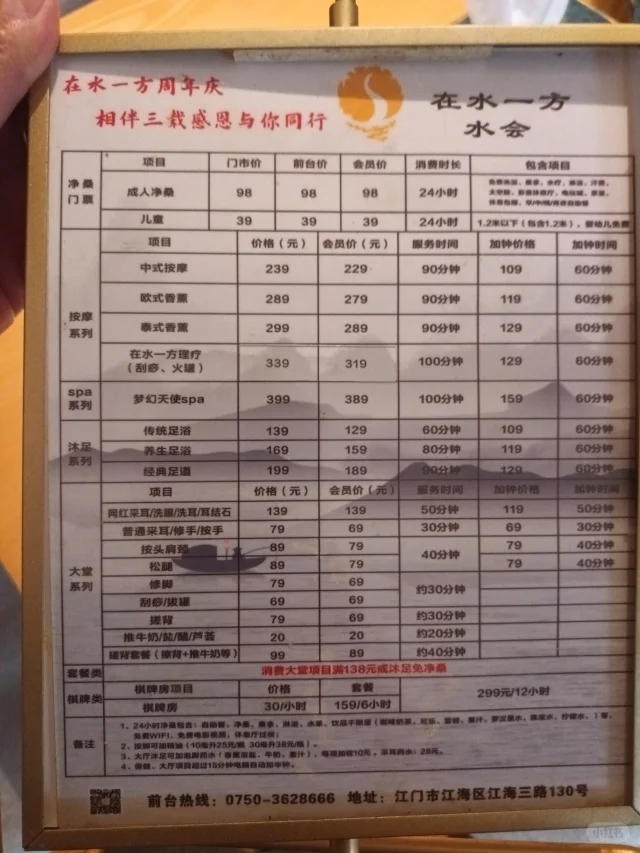 在水一方周年庆
相伴三载感恩与你同行
在水一方
水会
净桑门票 项目 门市价 前台价 会员价 消费时长 包含项目
成人净桑 98 98 98 24小时
儿童 39 39 39 24小时 1.2米以下（包含1.2米），婴幼儿免费
按摩系列 项目 价格（元） 会员价（元） 服务时间 加钟价格 加钟时间
中式按摩 239 229 90分钟 109 60分钟
欧式香薰 289 279 90分钟 119 60分钟
泰式香薰 299 289 90分钟 129 60分钟
在水一方理疗（刮痧、火罐） 339 319 100分钟 129 60分钟
spa系列 梦幻天使spa 399 389 100分钟 159 60分钟
沐足系列 传统足浴 139 129 60分钟 109 60分钟
养生足浴 169 159 80分钟 119 60分钟
经典足道 199 189 90分钟 129 60分钟
大堂系列 项目 价格（元） 会员价（元） 服务时间 加钟价格 加钟时间
网红采耳/洗眼/洗耳/耳结石 139 139 50分钟 119 50分钟
普通采耳/修手/按手 79 69 30分钟 69 30分钟
按头肩颈 89 79 40分钟 79 40分钟
松腿 89 79 79 40分钟
修脚 79 69 约30分钟
刮痧/拔罐 69 69
搓背 79 69 约30分钟
推牛奶/盐/醋/芦荟 20 20 约20分钟
搓背套餐（擦背+推牛奶等） 99 89 约40分钟
套餐类 消费大堂项目满138元或沐足免净桑
棋牌类 棋牌房项目 价格 套餐 299元/12小时
棋牌房 30/小时 159/6小时
备注 1、24小时净桑包含：自助餐、净桑、桑拿、淋浴、水果、饮品不限量
免费WIFI、免费电影视频、休息厅过夜；
2、按脚可加精油（10毫升25元/瓶 30毫升38元/瓶）。
3、大厅沐足可加泡脚药水（香薰浴盐、牛奶、姜汁），每项加收10元。采耳药水：28元。
4、保健、大厅项目超过15分钟电脑自动加半钟。
前台热线：0750-3628666 地址：江门市江海区江海三路130号
小红书